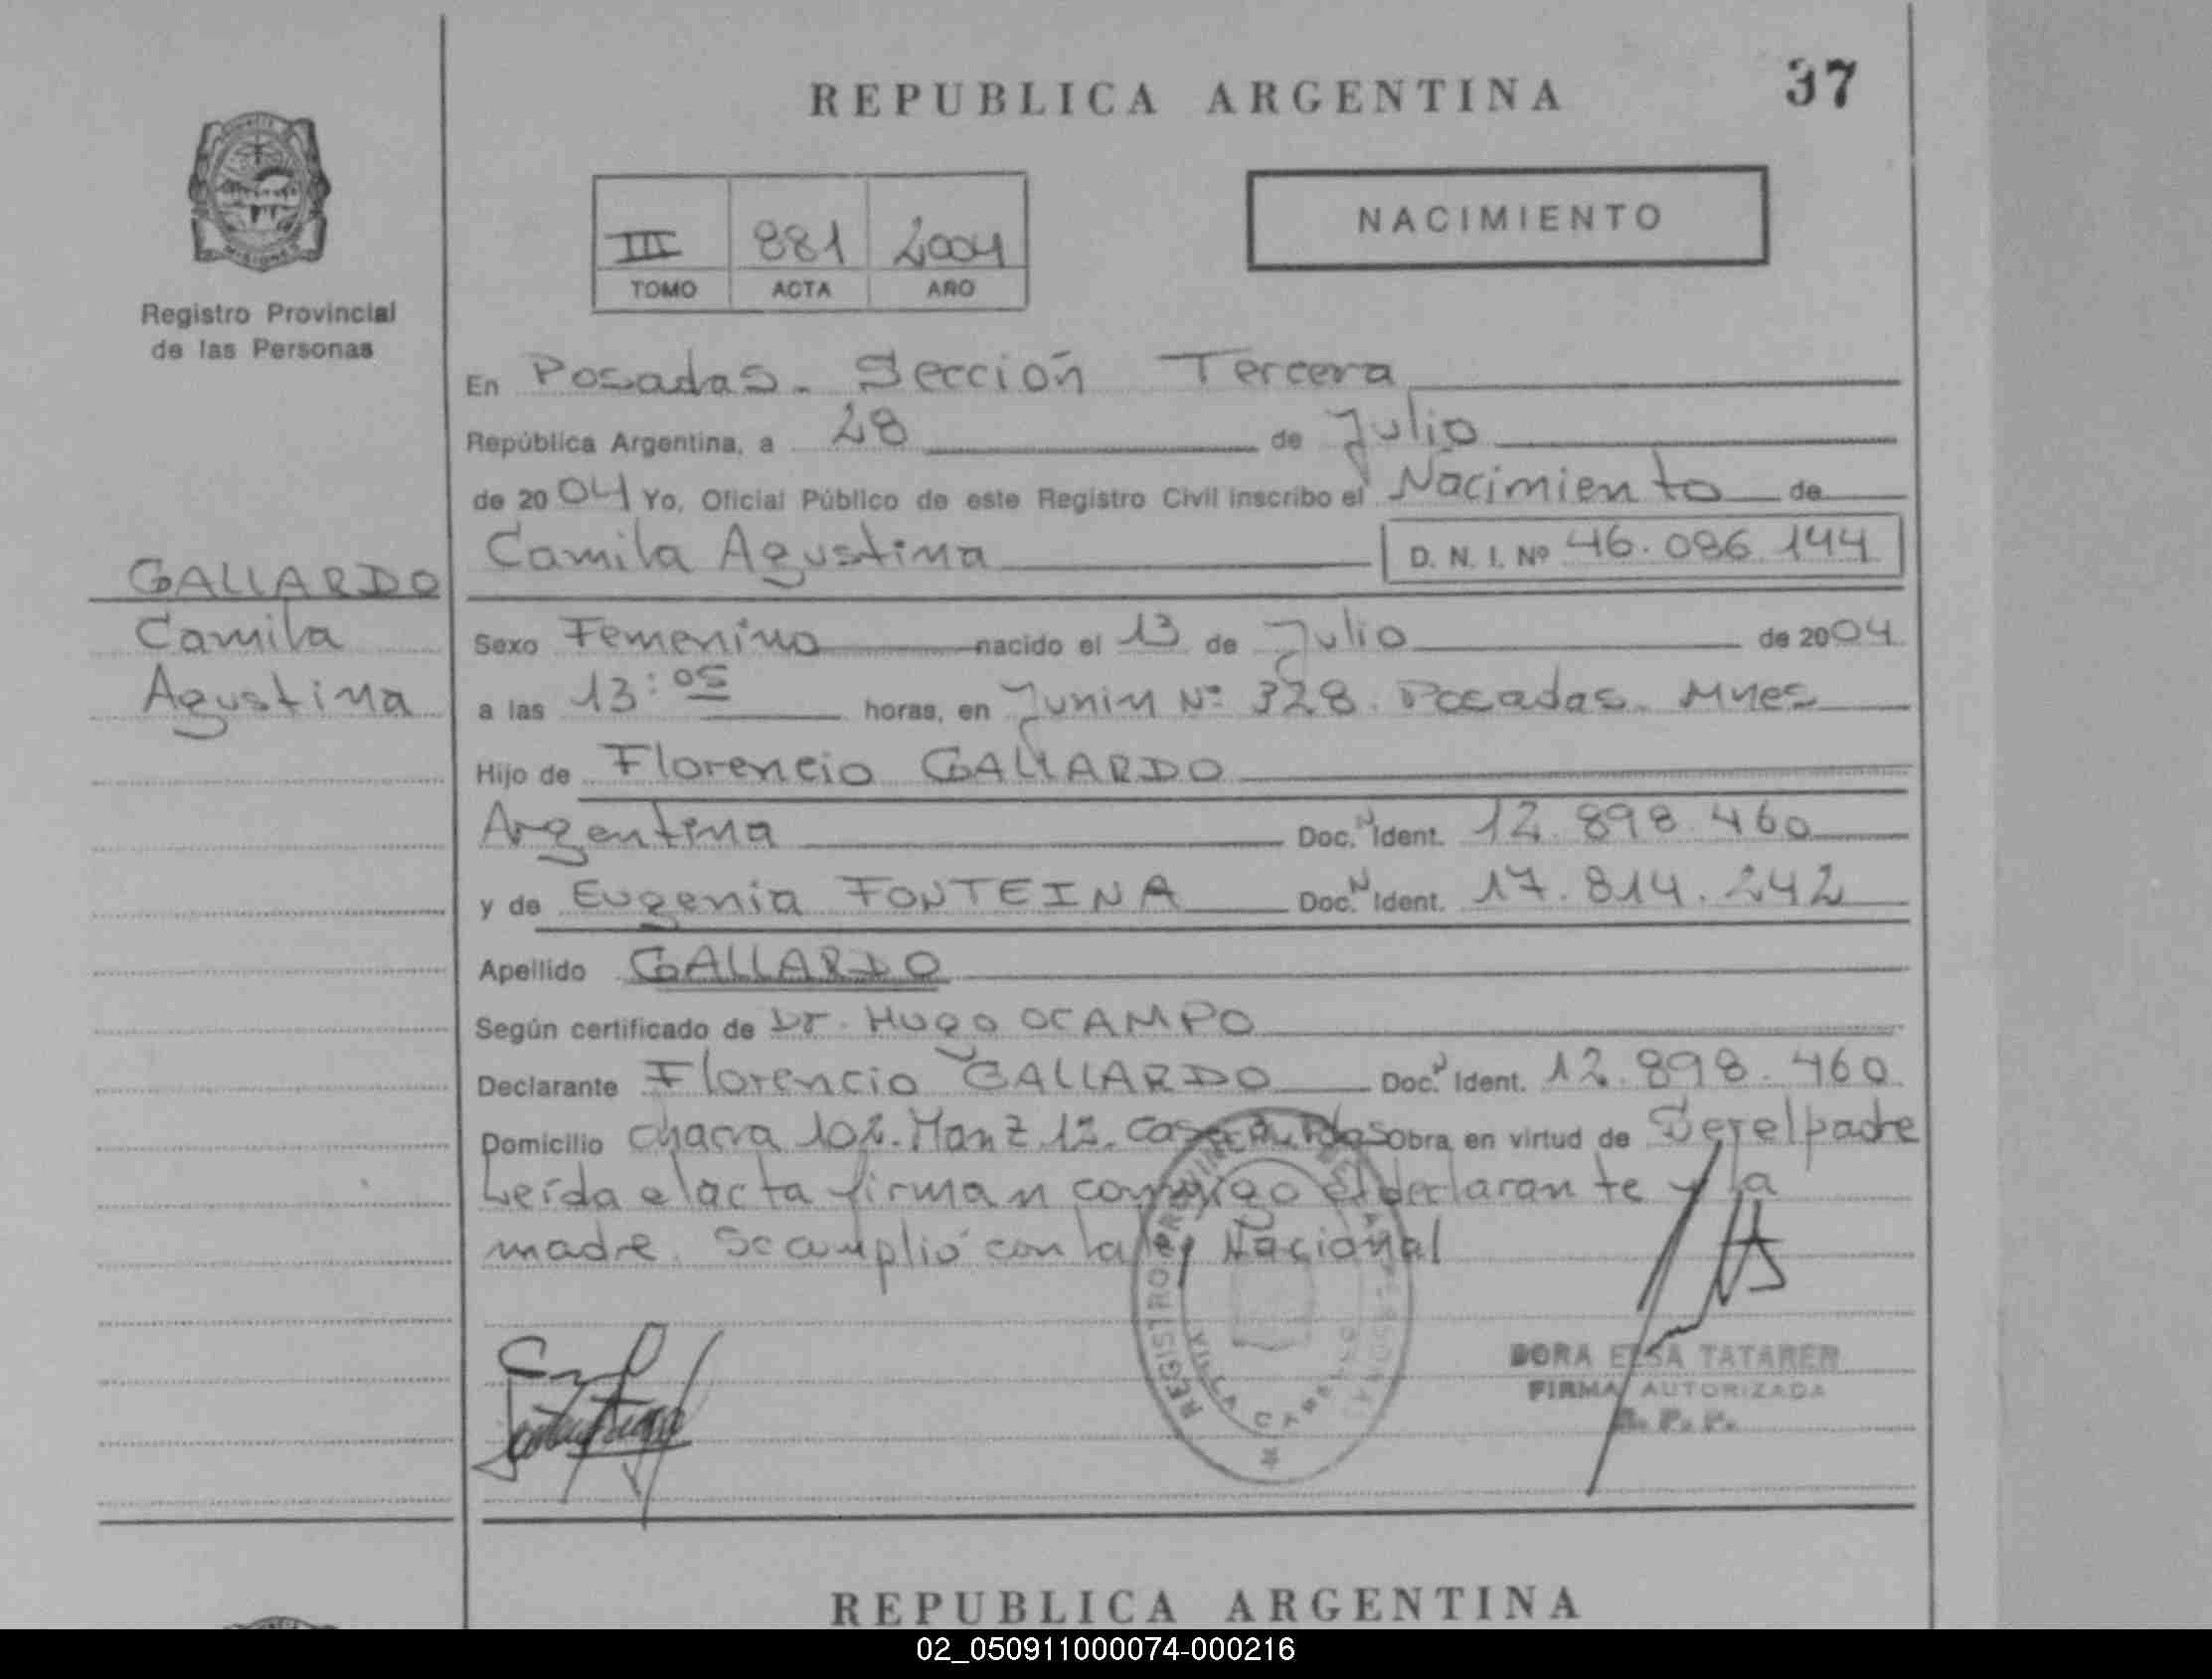 REPUBLICA ARGENTINA
37
Registro Provincial
de las Personas
NACIMIENTO
III 881 2004
TOMO ACTA AÑO
En Posadas - Sección Tercera
República Argentina, a 28 de Julio
de 2004 Yo, Oficial Público de este Registro Civil inscribo el Nacimiento de
Camila Agustina D. N. I. Nº 46.096.144
GALLARDO
Camila
Agustina
Sexo Femenino nacido el 13 de Julio de 2004
a las 13:05 horas, en Junin Nº 328. Posadas. Mnes
Hijo de Florencio GALLARDO
Argentina Doc. N Ident. 12.898.460
y de Eugenia FONTEINA Doc. N Ident. 17.814.242
Apellido GALLARDO
Según certificado de Dr. Hugo OCAMPO
Declarante Florencio GALLARDO Doc. N Ident. 12.898.460
Domicilio chacra 102. Manz 12. Casa Pdas Obra en virtud de Ser el padre
Leída el acta firman conmigo el declarante y la
madre. Se cumplió con la ley Nacional
REGISTRO PROVINCIAL DE LAS PERSONAS
VILLA CABELLO
DORA ELSA TATAREN
FIRMA AUTORIZADA
R. P. P.
REPUBLICA ARGENTINA
02_050911000074-000216